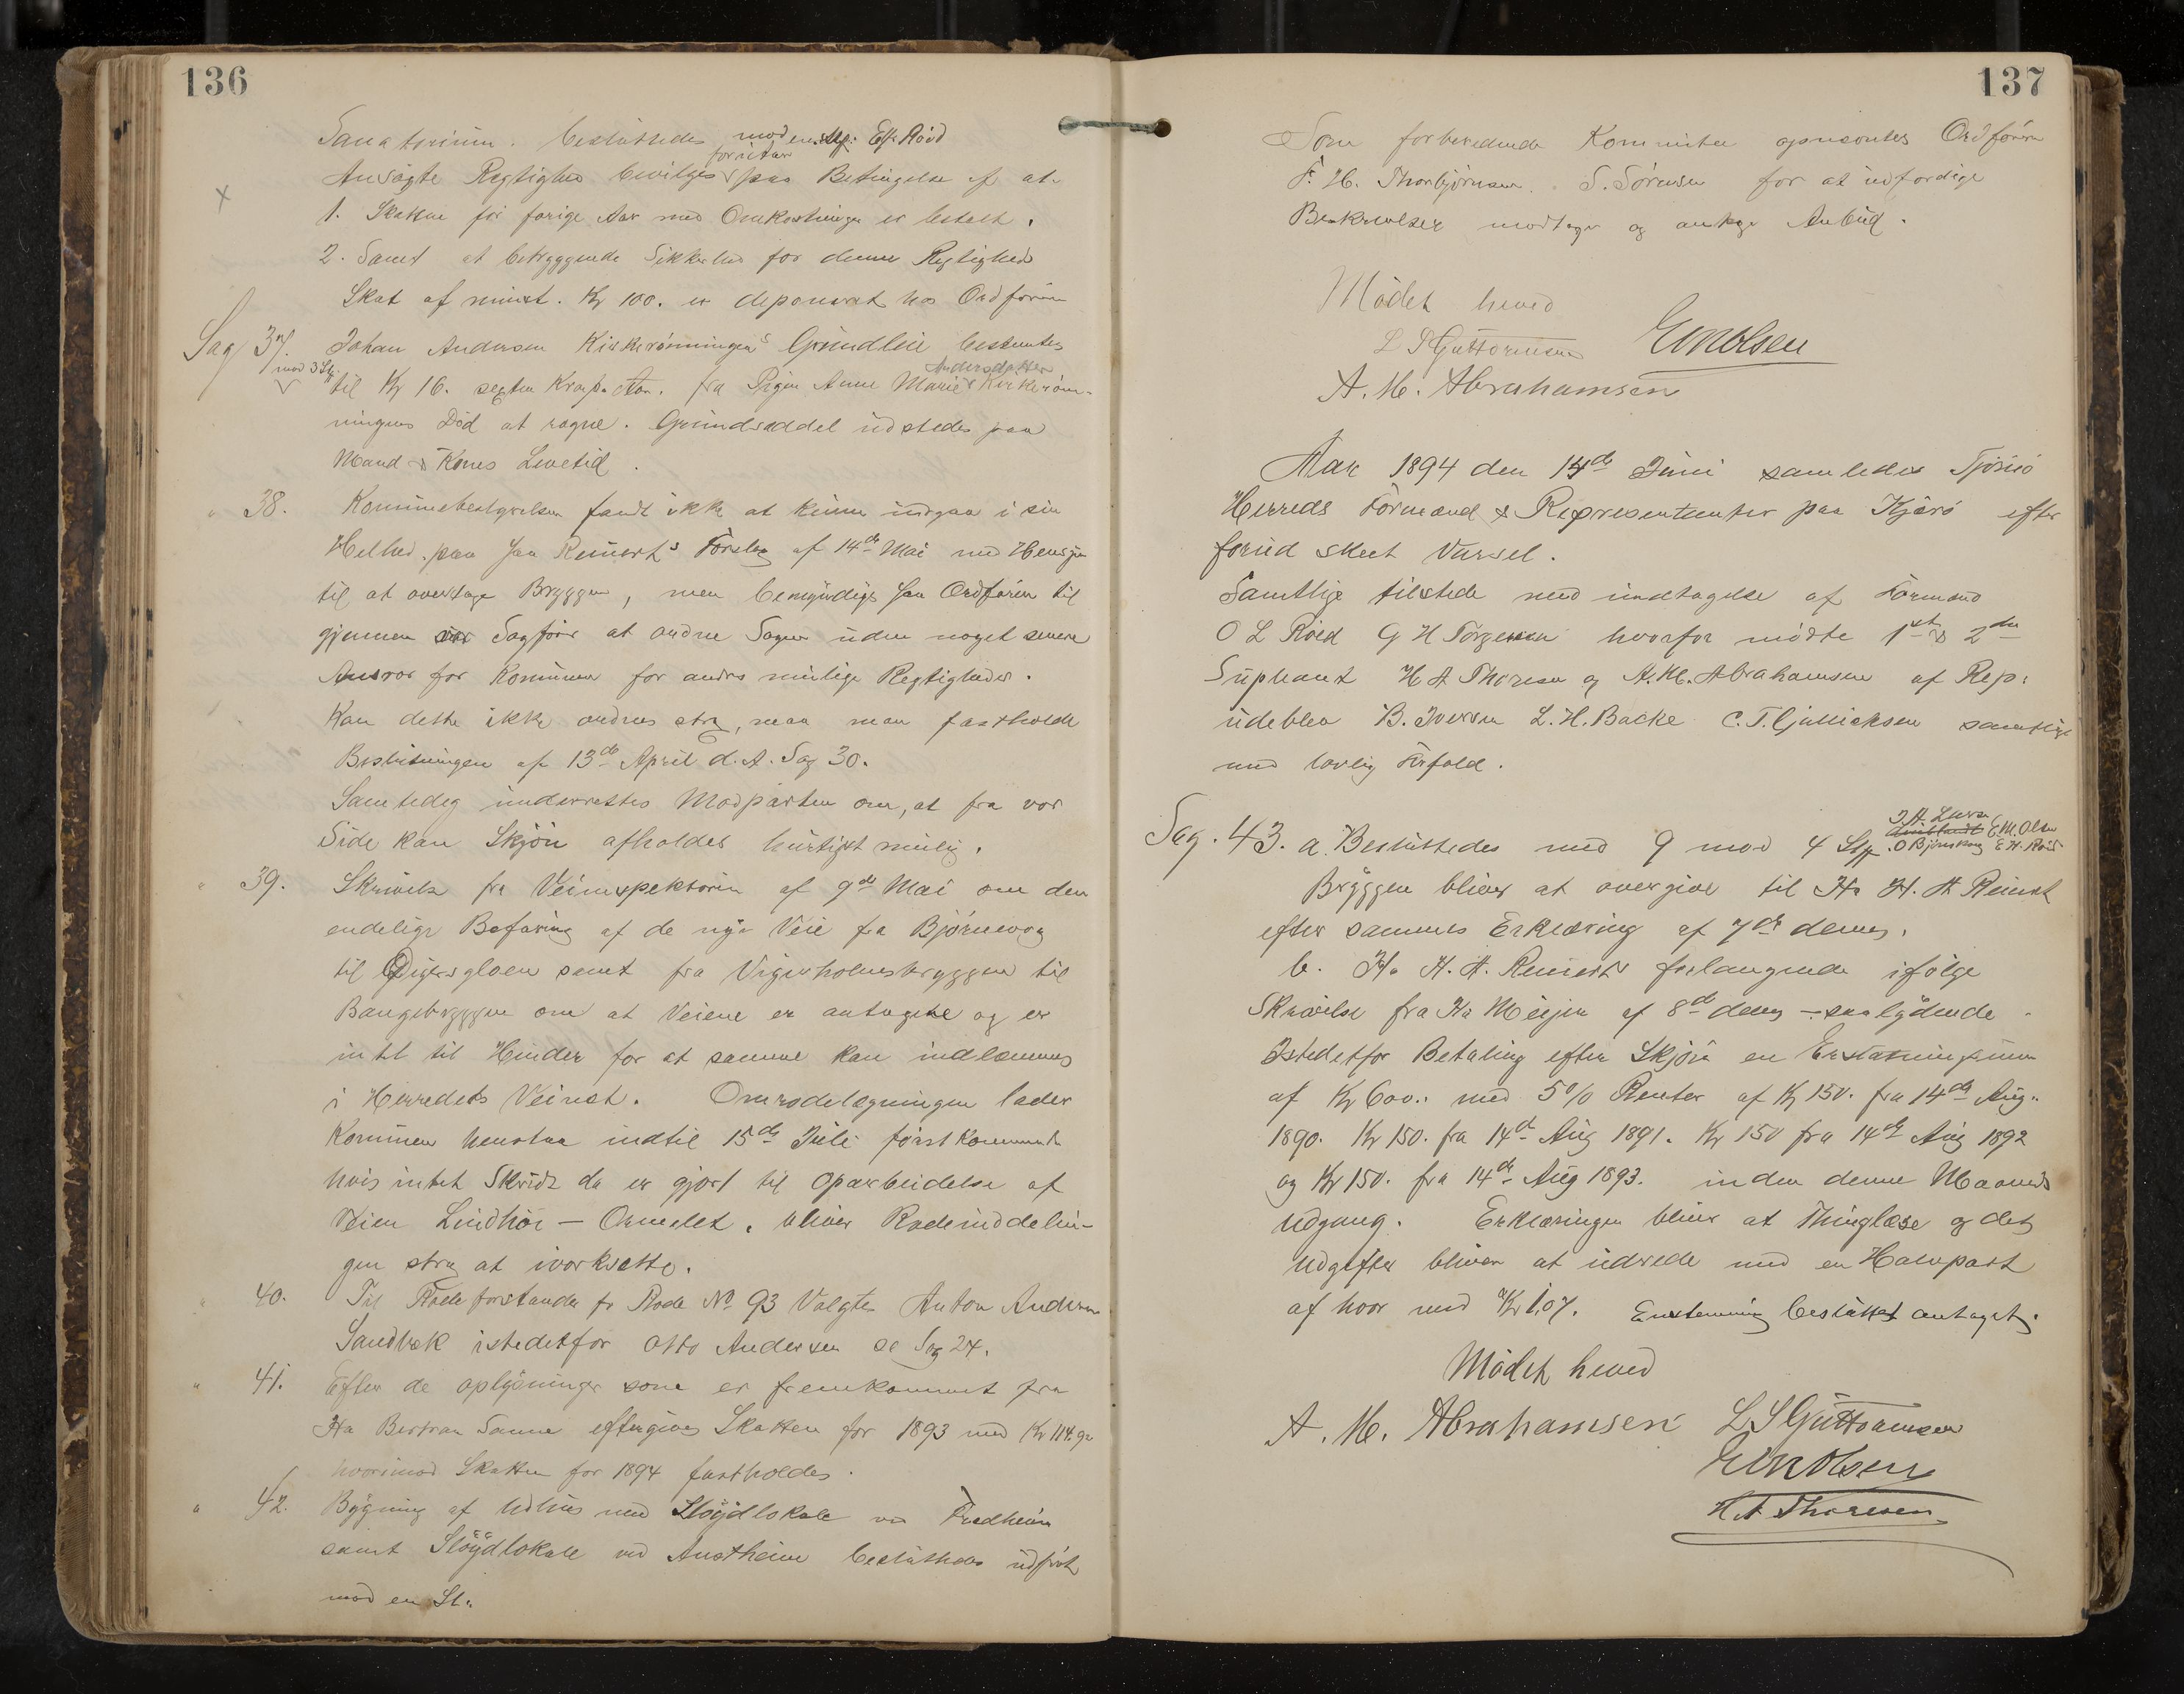 136
Sanatorium. besluttedes mod en Stf: Elf. Röed
Ansögte Rettighed bevilges for i Aar paa Betingelse af at
1. Skatten for forige Aar med Omkostninger er betalt.
2. Samt at betryggende Sikkerhed for denne Rettigheds
Skat af minst. Kr 100. er deponeret hos Ordfören
Sag 37. Johan Andersen Kirkerönningens Grundleie bestemtes
mod 3 St. til Kr 16. sexten Kr. pr. Aar. fra Pigen Anne Marie Andersdatter Kirkeröm-
ningens Död at regne. Grundseddel udstedes paa
Mand & Kones Levetid.
" 38. Kommunebestyrelsen fandt ikke at kunne indgaa i sin
Helhed paa Hr Reinert's Forslag af 14de Mai med Hensyn
til at overtage Bryggen, men bemyndiges Hr Ordfören til
gjennem vor Sagförer at ordne Sagen uden noget senere
Ansvar for Kommunen for andres mulige Rettigheder.
Kan dette ikke ordnes strax, maa man fastholde
Beslutningen af 13de April d. A. Sag 30.
Samtidig underrettes Modparten om, at fra vor
Side kan Skjön afholdes hurtigst mulig.
" 39. Skrivelse fra Veiinspektören af 9de Mai om den
endelige Befaring af de nye Veie fra Björnevaag
til samt fra Vigerholmsbryggen til
Bangsbryggen om at Veiene er antagne og er
intet til Hinder for at samme kan indlemmes
i Herredets Veinet. Omrodelægningen lader
Kommunen henstaa indtil 15de Juli förstkommende
hvis intet Skridt da er gjort til Oparbeidelse af
Veien Lindhöi – Ormelet, bliver Rodeinddelin-
gen strax at iverksætte.
" 40. Til Rodeforstander for Rode No 93 Valgtes Anton Andersen
Sandbæk istedetfor Otto Andersen se Sag 24.
" 41. Efter de oplysninger som er fremkommet fra
Hr Bertran Sanne eftergives Skatten for 1893 med Kr 114.92
hvorimod Skatten for 1894 fastholdes.
" 42. Bygning af Udhus med Slöydlokale ved Fredheim
samt Slöydlokale ved Austheim besluttedes udfört
mod en St.
137
Som forberedende Kommitee opnevntes Ordförer
F. H. Thorbjörnsen. S. Sörensen for at udferdige
Beskrivelser modtage og antage Anbud.
Mödet hevet
L S Guttormsen EMOlsen
A. M. Abrahamsen
Aar 1894 den 14de Juni samledes Tjömö
Herreds Formænd & Representanter paa Kjærö efter
forud skeet Varsel.
Samtlige tilstede med undtagelse af Formænd
O L Röed G H Törgersen hvorfor mödte 1ste & 2den
Supleant H A Thoresen og A. M. Abrahamsen af Rep:
udeblev B. Iversen L. H. Backe C. T. Gjullicksen samtlige
med lovlig Forfald.
Sag. 43. a. Besluttedes med 9 mod 4 Stf. E. M. Olsen O Björnskog E H. Röed
Bryggen bliver at overgive til Hr H. A Reinert
efter sammes Erklæring af 7de dennes.
b. Hr H. A. Reinerts forlangende ifölge
Skrivelse fra Hr Meijer af 8de dennes – saalydende.
Istedetfor Betaling efter Skjön en Erstatningssum
af Kr 600.. med 5% Renter af Kr 150. fra 14de Aug.
1890. Kr 150. fra 14de Aug 1891. Kr 150 fra 14de Aug 1892
og Kr 150. fra 14de Aug 1893. inden denne Maaneds
udgang. Erklæringen bliver at Thinglæse og dets
Udgifter bliver at udrede med en Halvpart
af hver med Kr 1,07. Enstemmig besluttet antaget.
Mödet hevet
A. M. Abrahamsen L S Guttormsen
EMOlsen
H A Thoresen